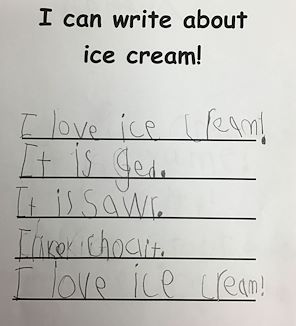 I can write about
ice cream!
I love ice cream!
It is ged.
It is sawr.
chocit.
I love ice cream!